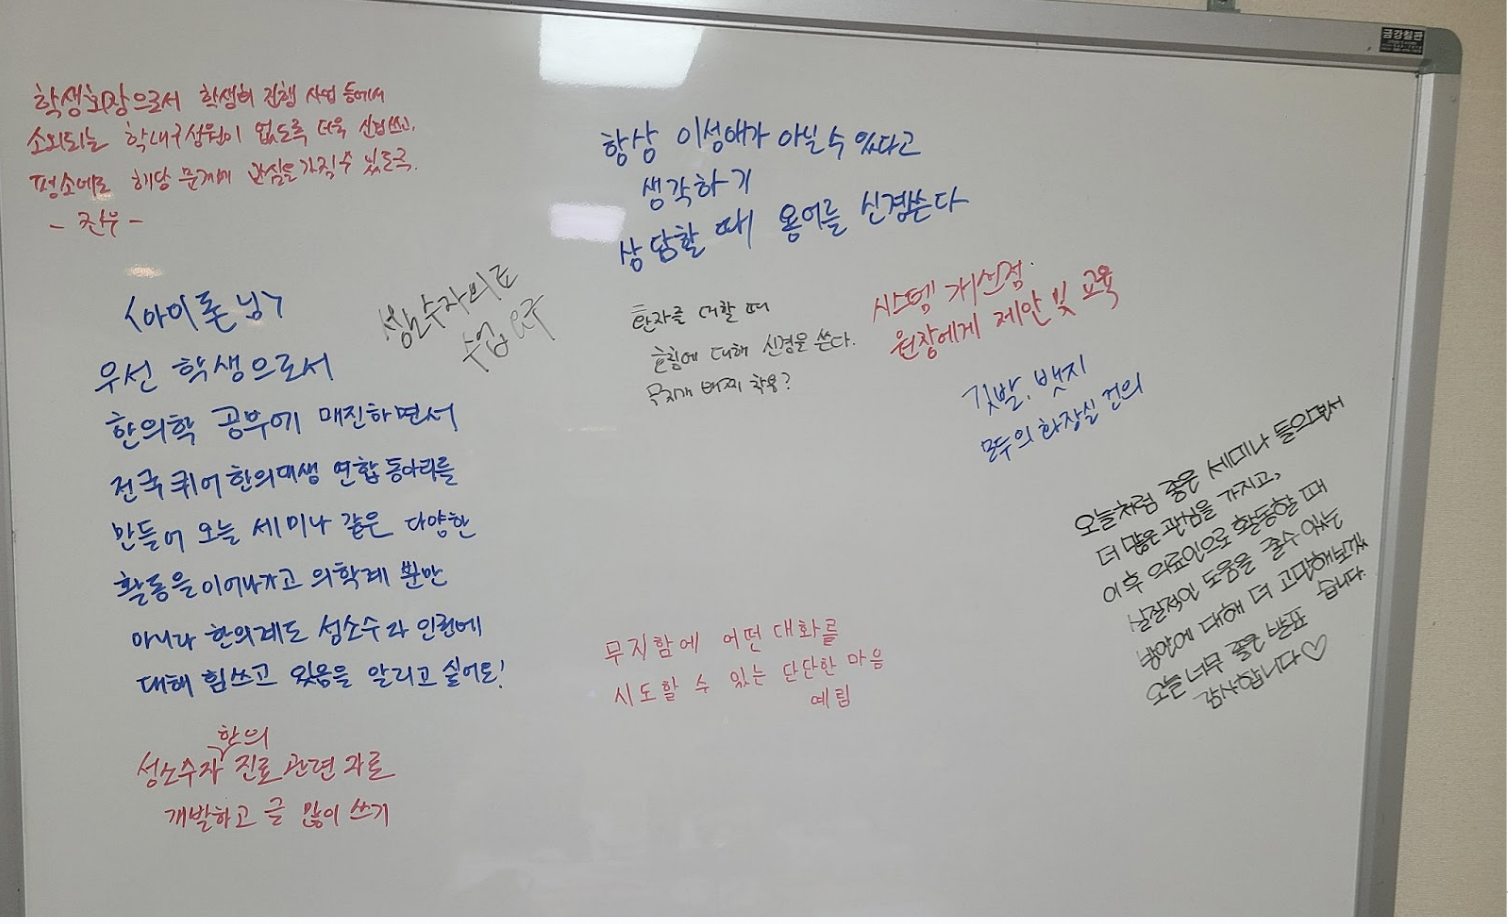 금강칠판
학생회장으로서 학생회 진행 사업 등에서
소외되는 학내구성원이 없도록 더욱 신경쓰고,
평소에도 해당 문제에 관심을 가질 수 있도록.
항상 이성애가 아닐 수 있다고
생각하기
상담할 때 용어를 신경쓴다
<아이론님>
우선 학생으로서
한의학 공부에 매진하면서
전국 퀴어 한의대생 연합 동아리를
만들어 오늘 세미나 같은 다양한
활동을 이어나가고 의학계 뿐만
아니라 한의계도 성소수자 인권에
대해 힘쓰고 있음을 알리고 싶어요!
성소수자의료
수업 요구
환자를 대할 때
호칭에 대해 신경을 쓴다.
무지개 배찌 착용?
시스템 개선점.
원장에게 제안 및 교육
깃발, 뱃지
모두의 화장실 건의
오늘처럼 좋은 세미나 들으면서
더 많은 관심을 가지고,
이후 의료인으로 활동할 때
실질적인 도움을 줄수 있는
방안에 대해 더 고민해보겠
습니다.
오늘 너무 좋은 발표
감사합니다♡
무지함에 어떤 대화를
시도할 수 있는 단단한 마음
예림
한의
성소수자 ∨ 진료 관련 자료
개발하고 글 많이 쓰기